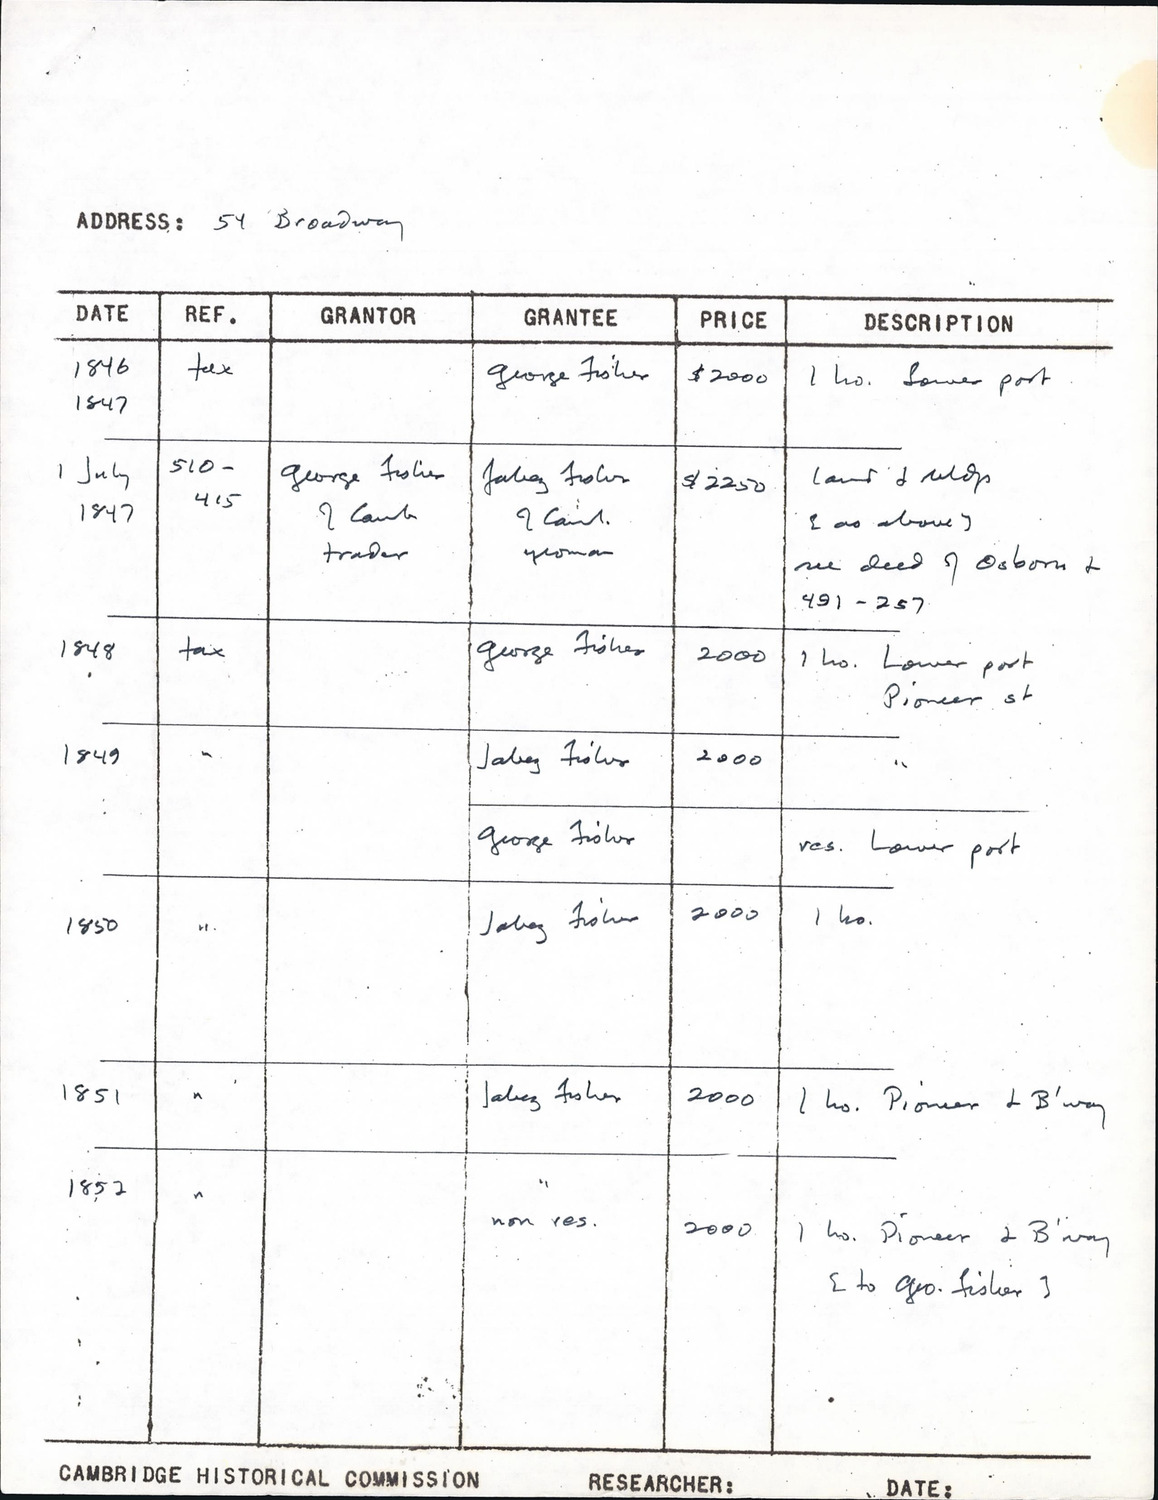 ADDRESS: 54 Broadway
DATE REF. GRANTOR GRANTEE PRICE DESCRIPTION
1846 tax George Fisher $2000 1 ho. Lower port
1847
1 July 510- George Fisher Jabez Fisher $2250 land & bldgs
1847 415 of Camb of Camb. [as above]
trader yeoman see deed of Osborn &
491-257
1848 tax George Fisher 2000 1 ho. Lower port
Pioneer st
1849 " Jabez Fisher 2000 "
George Fisher res. Lower port
1850 " Jabez Fisher 2000 1 ho.
1851 " Jabez Fisher 2000 1 ho. Pioneer & B'way
1852 " "
non res. 2000 1 ho. Pioneer & B'way
[to Geo. Fisher]
CAMBRIDGE HISTORICAL COMMISSION RESEARCHER: DATE: